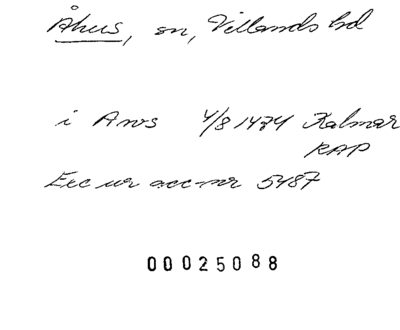 Åhus, sn, Villands hd
i Aws 4/8 1474 Kalmar
RAP
Exc ur acc-nr 5487
00025088